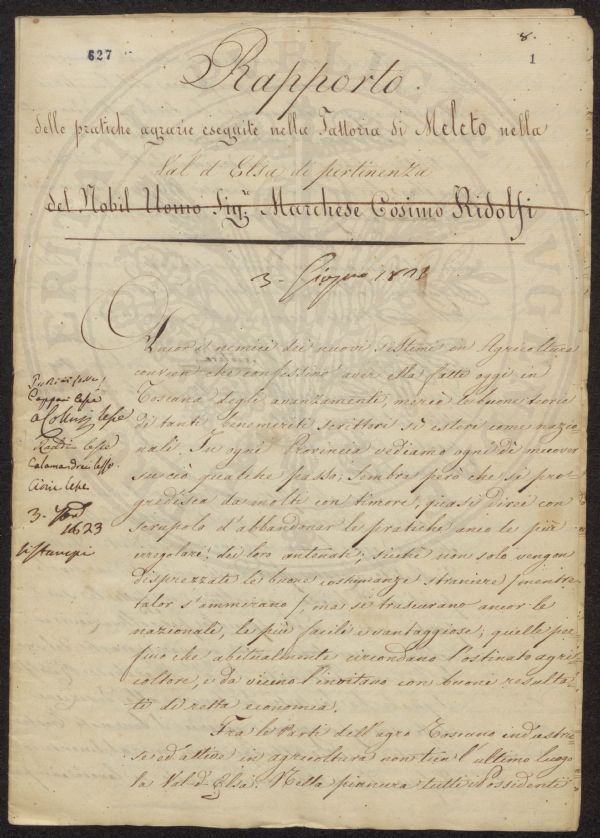 627
8.
1
Rapporto
delle pratiche agrarie eseguite nella Fattoria di Meleto nella
Val d'Elsa di pertinenza
del Nobil Uomo Sig.r Marchese Cosimo Ridolfi
3. Giugno
Ancor i nemici dei nuovi sistemi in Agricoltura
convien che confessino aver ella fatto oggi in
Toscana degli avanzamenti, mercè le buone teorie
di tanti benemeriti scrittori sì esteri come nazio
nali. In ogni Provincia vediamo ogni dì muover
su ciò qualche passo; sembra però che si pro=
gredisca da molti con timore, quasi direi con
scrupolo d'abbandonar le pratiche anco le più
irregolari dei loro antenati; sicchè non solo vengon
disprezzate le buone costumanze straniere / mentre
talor s'ammirano /, ma si trascurano ancor le
nazionali, le più facili e vantaggiose, quelle per=
fino che abitualmente circondano l'ostinato agri=
coltore, e da vicino l'invitano con buoni resulta=
ti di retta economia.
Fra le Parti dell'agro Toscano industrio
se ed attive in agricoltura non tien l'ultimo luogo
la Val d'Elsa. Nella pianura tutti i Possidenti
lesse
Calamandrei lesse
lesse
3.
1823
si stampi